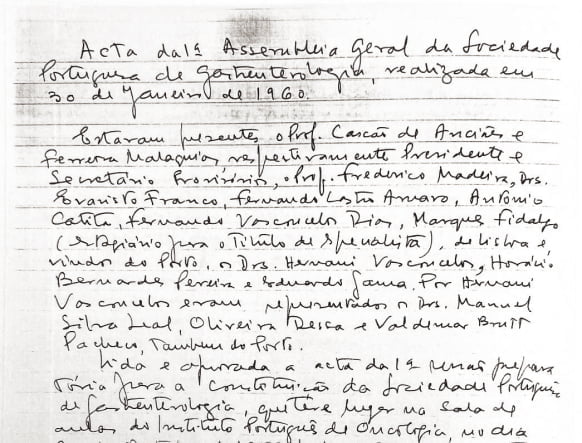 Acta da 1ª Assembleia Geral da Sociedade
Portuguesa de Gastrenterologia, realizada em
30 de Janeiro de 1960.
Estavam presentes o Prof. Cascão de Anciães e
Ferreira Malaquias respectivamente Presidente e
Secretário Provisórios, o Prof. Frederico Madeira, Drs.
Evaristo Franco, Fernando Castro Amaro, António
Catita, Fernando Vasconcelos Dias, Marques Fidalgo
(estagiário para o Titulo de Specialista), de Lisboa e
vindos do Porto, os Drs. Hernani Vasconcelos, Horácio
Bernardes Pereira e Eduardo Gama. Por Hernani
Vasconcelos eram representados os Drs. Manuel
Silva Leal, Oliveira Dessa e Valdemar
Pacheco, Tambem do Porto.
Lida e aprovada a acta da 1ª prepara
tória para a Constituição da Sociedade
de Gastrenterologia, que teve lugar na sala de
aulas do Instituto Português de Oncologia, no dia